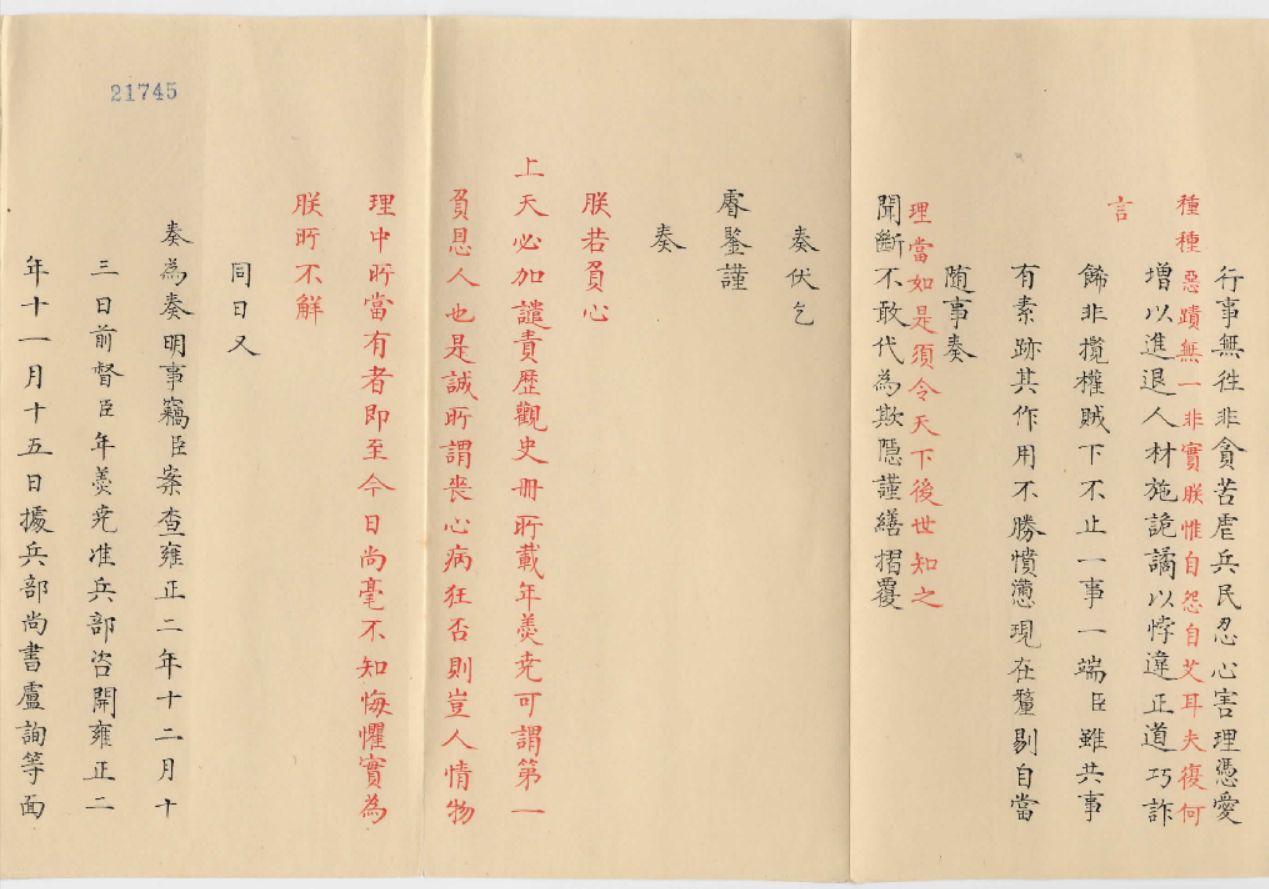 行事無徃非貪苦虐兵民忍心害理憑愛
種種惡蹟無一非實朕惟自怨自艾耳夫復何
增以進退人材施詭譎以悖違正道巧詐
言
餙非攬權賊下不止一事一端臣雖共事
有素跡其作用不勝憤懣現在釐剔自當
随事奏
理當如是須令天下後世知之
聞斷不敢代為欺隱謹繕摺覆
奏伏乞
睿鑒謹
奏
朕若負心
上天必加譴責歷觀史冊所載年羹尭可謂第一
負恩人也是誠所謂喪心病狂否則豈人情物
理中所當有者即至今日尚毫不知悔懼實為
朕所不解
同日又
奏為奏明事竊臣案查雍正二年十二月十
三日前督臣年羹尭准兵部咨開雍正二
年十一月十五日據兵部尚書盧詢等面
21745